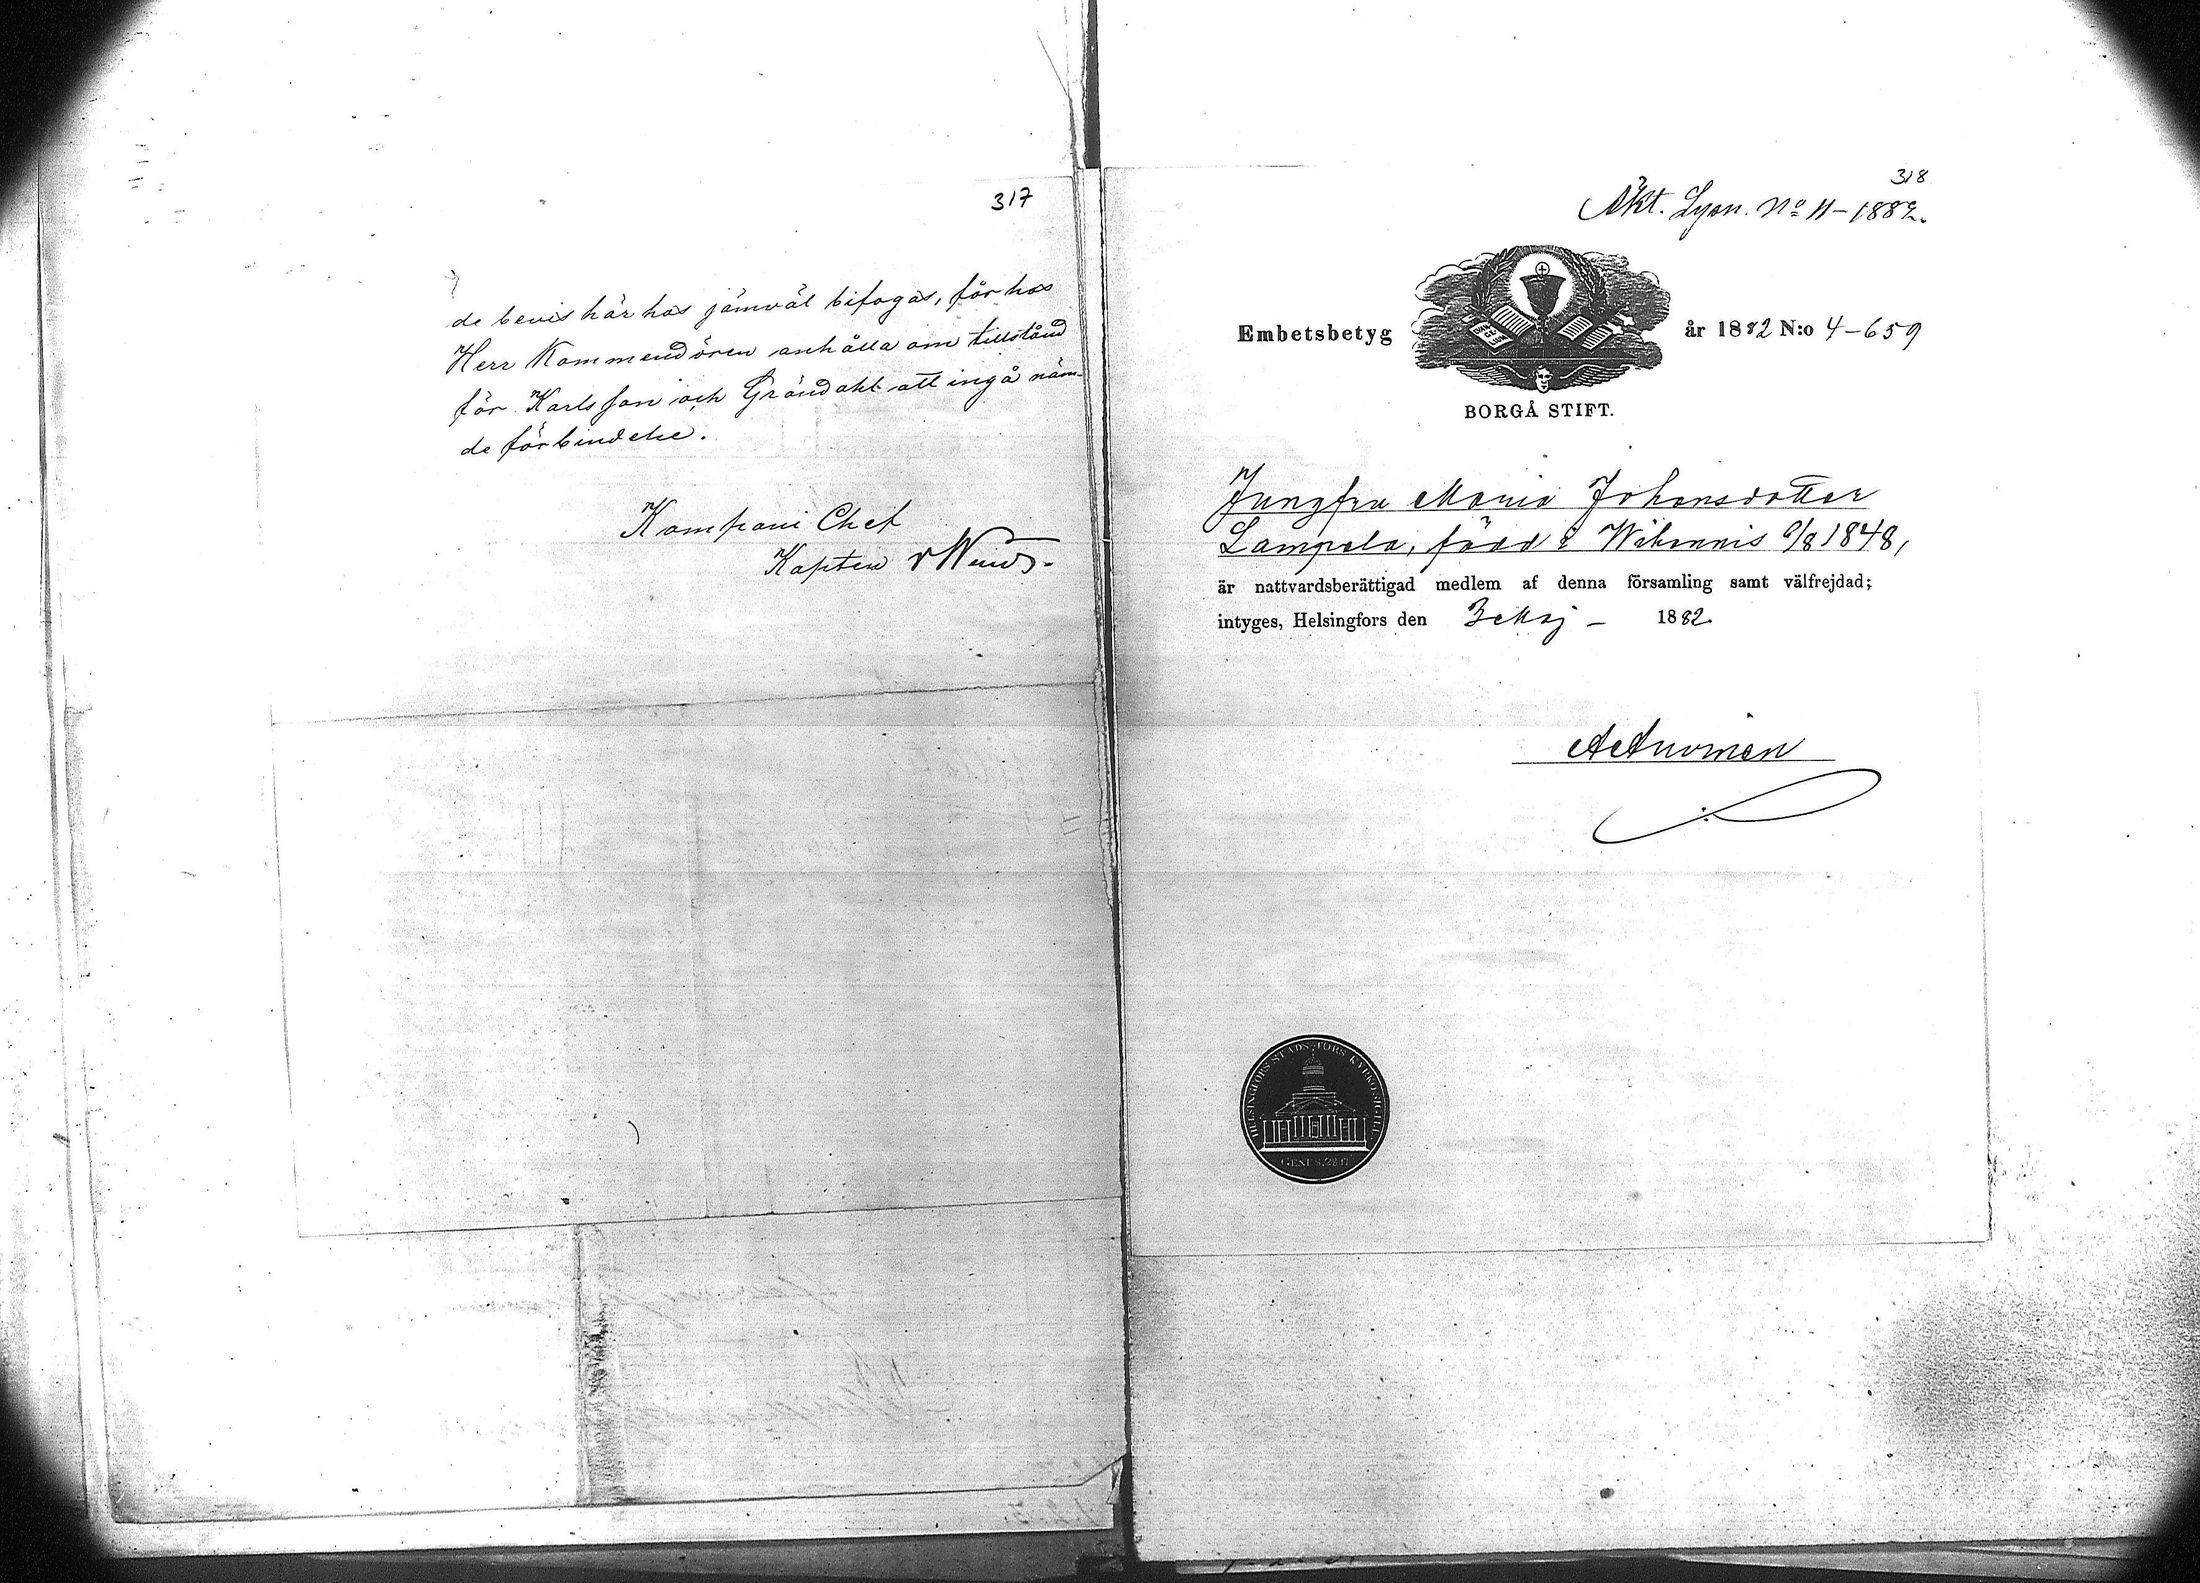 317
de bevis här hos jämväl bifogas, får hos
Herr Kommendören anhålla om tillstånd
för Karlsson och Gröndahl att ingå näm-
de förbindelse.
Kompani Chef
Kapten
318
Akt. Lysn. No 11-1882.
Embetsbetyg
år 1882 N:o 4-659
BORGÅ STIFT.
Jungfru Maria Johansdotter
Lampela, född i Wihannis 6/8 1848,
är nattvardsberättigad medlem af denna församling samt välfrejdad;
intyges, Helsingfors den 3 Maj - 1882.
HELSINGFORS STADS FÖRS. KYRKO SIGILL